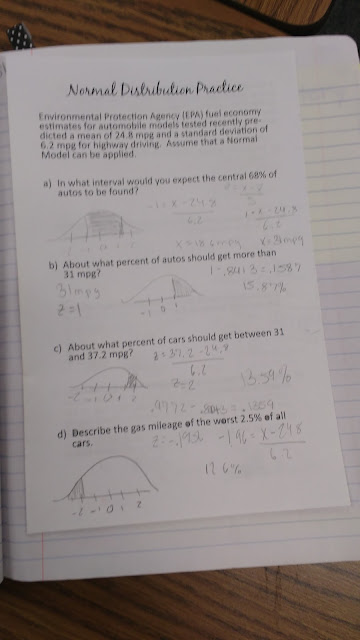 Normal Distribution Practice
Environmental Protection Agency (EPA) fuel economy
estimates for automobile models tested recently pre-
dicted a mean of 24.8 mpg and a standard deviation of
6.2 mpg for highway driving. Assume that a Normal
Model can be applied.
a) In what interval would you expect the central 68% of
autos to be found?
-1 = x - 24.8
6.2
1 = x - 24.8
6.2
x = 18.6 mpg x = 31 mpg
b) About what percent of autos should get more than
31 mpg?
1 - .8413 = .1587
31 mpg
z = 1
15.87%
-1 0 1
c) About what percent of cars should get between 31
and 37.2 mpg?
z = 37.2 - 24.8
6.2
z = 2
13.59%
-2 -1 0 1 2
.9772 - .8413 = .1359
d) Describe the gas mileage of the worst 2.5% of all
cars.
-1.96 = x - 24.8
6.2
-2 -1 0 1 2